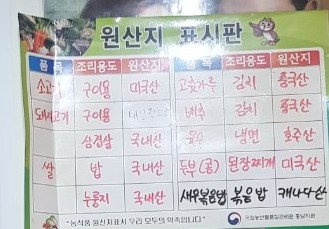 원산지 표시판
품목 조리용도 원산지 품목 조리용도 원산지
소고기 구이용 미국산 고춧가루 김치 중국산
돼지고기 구이용 배추 김치 중국산
삼겹살 국내산 육수 냉면 호주산
쌀 밥 국내산 두부(콩) 된장찌개 미국산
누룽지 국내산 새우볶음밥 볶음밥 캐나다산
"농식품 원산지표시 우리 모두의 약속입니다"
국립농산물품질관리원 충남지원